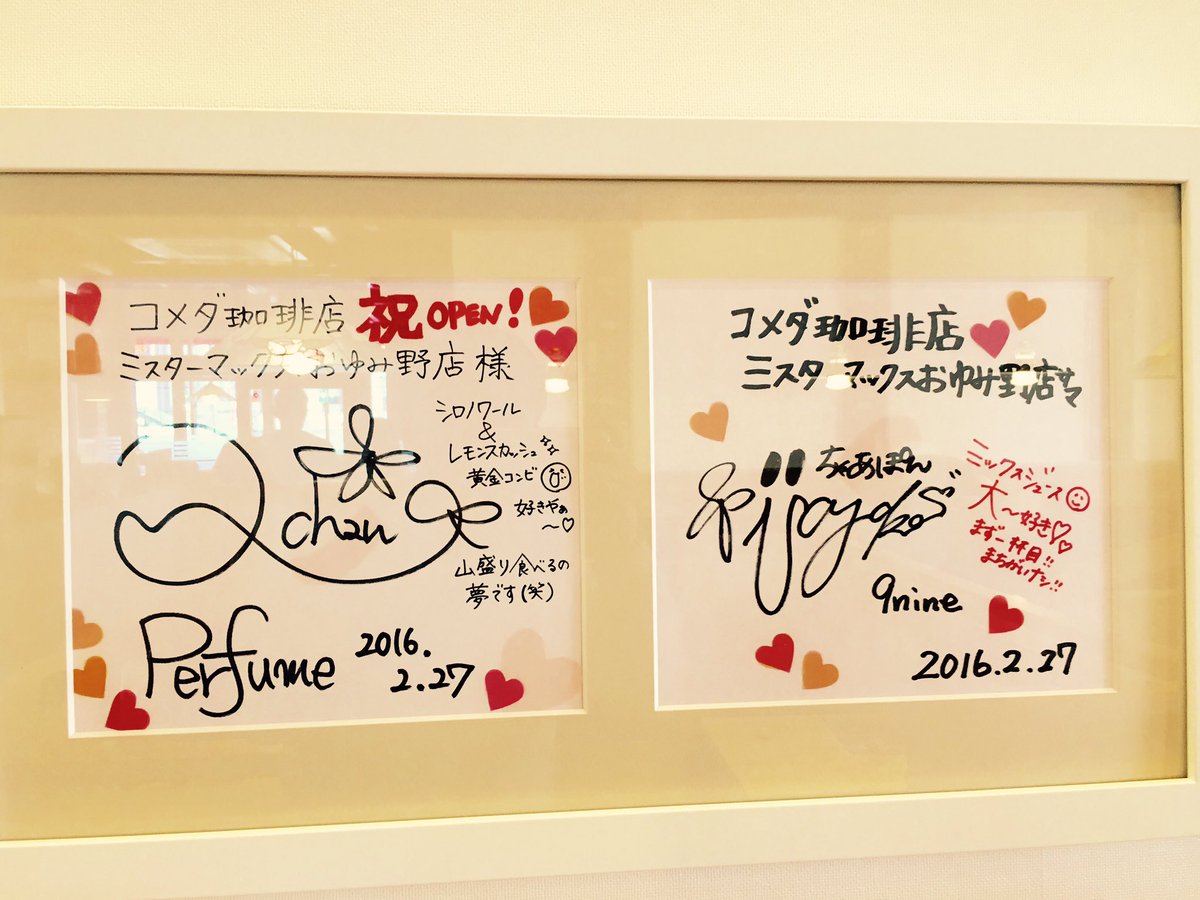 コメダ珈琲店 祝OPEN!
ミスターマックスおゆみ野店様
シロノワール
&
レモンスカッシュ
黄金コンビ
好きやぁ
〜♡
chan
山盛り食べるの
夢です(笑)
Perfume
2016.
2.27
コメダ珈琲店
ミスターマックスおゆみ野店サマ
ちゃあぽん
ミックスジュース
大〜好き♡
まず一杯目!!
まちがいナシ!!
9nine
2016.2.27